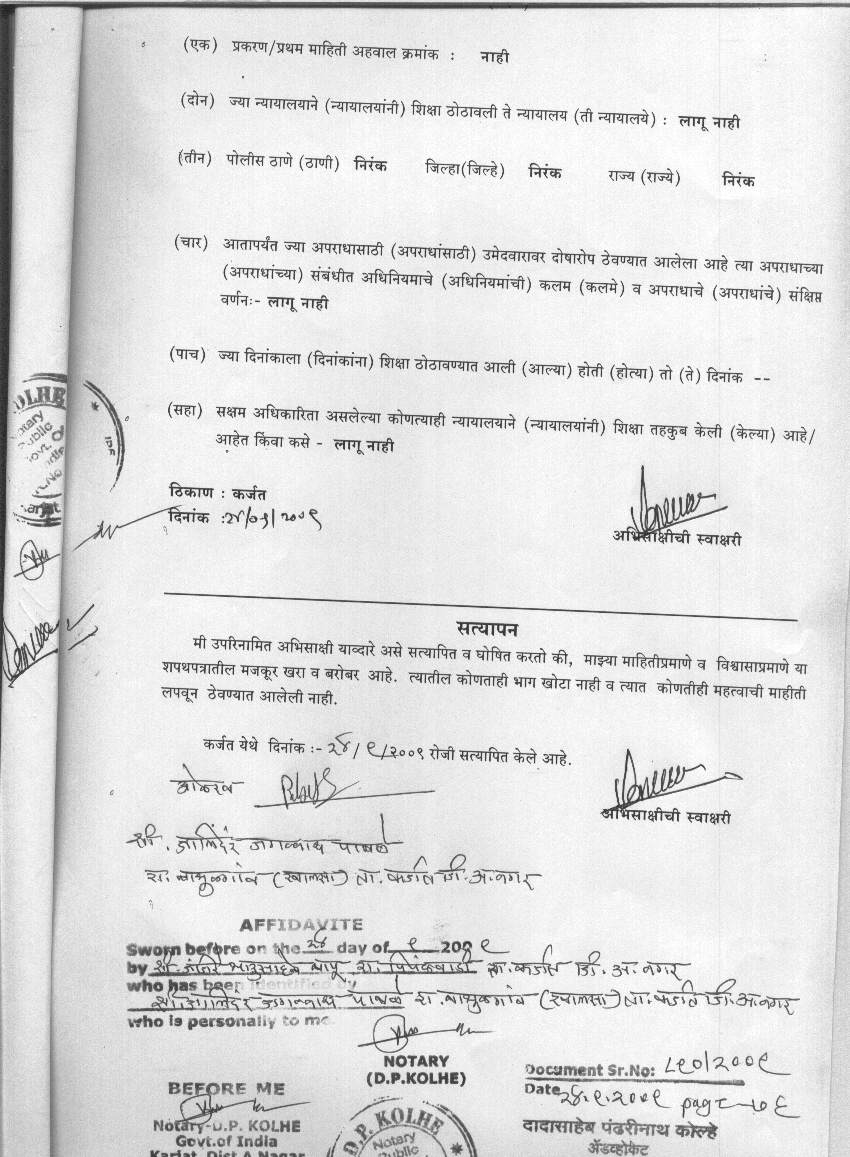 (एक) प्रकरण/प्रथम माहिती अहवाल क्रमांक : नाही
(दोन) ज्या न्यायालयाने (न्यायालयांनी) शिक्षा ठोठावली ते न्यायालय (ती न्यायालये) : लागू नाही
(तीन) पोलीस ठाणे (ठाणी) निरंक जिल्हा(जिल्हे) निरंक राज्य (राज्ये) निरंक
(चार) आतापर्यंत ज्या अपराधासाठी (अपराधांसाठी) उमेदवारावर दोषारोप ठेवण्यात आलेला आहे त्या अपराधाच्या
(अपराधांच्या) संबंधीत अधिनियमाचे (अधिनियमांची) कलम (कलमे) व अपराधाचे (अपराधांचे) संक्षिप्त
वर्णनः- लागू नाही
(पाच) ज्या दिनांकाला (दिनांकांना) शिक्षा ठोठावण्यात आली (आल्या) होती (होत्या) तो (ते) दिनांक --
(सहा) सक्षम अधिकारिता असलेल्या कोणत्याही न्यायालयाने (न्यायालयांनी) शिक्षा तहकुब केली (केल्या) आहे/
आहेत किंवा कसे - लागू नाही
ठिकाण : कर्जत
दिनांक :२४/०९/२००९
अभिसाक्षीची स्वाक्षरी
सत्यापन
मी उपरिनामित अभिसाक्षी याव्दारे असे सत्यापित व घोषित करतो की, माझ्या माहितीप्रमाणे व विश्वासाप्रमाणे या
शपथपत्रातील मजकूर खरा व बरोबर आहे. त्यातील कोणताही भाग खोटा नाही व त्यात कोणतीही महत्वाची माहीती
लपवून ठेवण्यात आलेली नाही.
कर्जत येथे दिनांक :- २४/९/२००९ रोजी सत्यापित केले आहे.
ओळख
अभिसाक्षीची स्वाक्षरी
श्री. जालिंदर जगन्नाथ
रा. बाभुळगांव (खालसा) ता. कर्जत जि. अ.नगर
AFFIDAVITE
Sworn before on the २४ day of ९ 200९
by श्री. भाऊसाहेब रा. ता. कर्जत जि. अ. नगर
who has been identified by
श्री जालिंदर जगन्नाथ रा. बाभुळगांव (खालसा) ता. कर्जत जि. अ.नगर
who is personally to me
NOTARY
(D.P.KOLHE)
Document Sr.No: ८९०/२००९
Date २४.९.२००९ page - ७६
BEFORE ME
Notary-D.P. KOLHE
Govt.of India
Karjat, Dist A.Nagar
D.P. KOLHE
Notary
Public
दादासाहेब पंढरीनाथ कोल्हे
ॲडव्होकेट